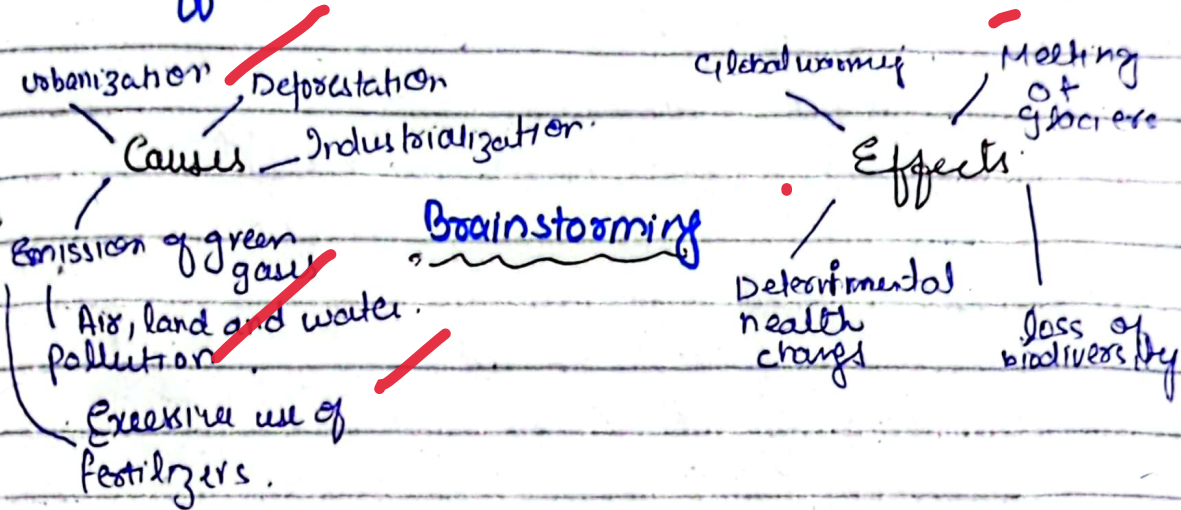 Urbanization
Deforestation
Causes
Industrialization.
Emission of green
gases
Air, land and water.
pollution.
Excessive use of
fertilizers.
Brainstorming
Global warming
Melting
of
glaciers
Effects
health
loss of
biodiversity